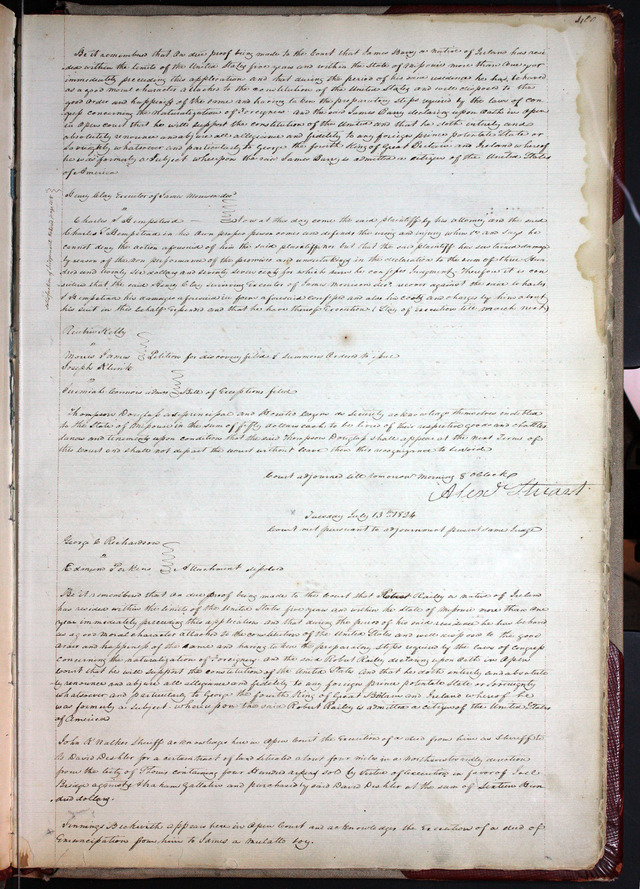 Be it remembered that on due proof being made to the Court that James Barry a native of Ireland has resi
ded within the limits of the United States five years and within the State of Missouri more than one year
immediately preceding this application and that during the period of his said residence he has behaved
as a good moral character attached to the constitution of the United States and well disposed to the
good order and happiness of the same and having taken the preparatory steps required by the laws of con
gress concerning the Naturalization of Foreigners and the said James Barry declaring upon Oath in open
in open court that he will support the constitution of the United States and that he doth entirely and
absolutely renounce and abjure all allegiance and fidelity to any foreign prince potentate State or
Sovereignty whatsoever and particularly to George the fourth King of Great Britain and Ireland whereof
he was formerly a subject whereupon the said James Barry is admitted a citizen of the United States
of America
Henry Clay Executor of James Morrison decd
vs
Charles S Hempstead Now at this day come the said plaintiff by his attorney and the said
Charles S Hempstead in his own proper person comes and defends the wrong and injury when &c and says he
cannot deny the action aforesaid of him the said plaintiff nor but that the said plaintiff has sustained damage
by reason of the non performance of the promises and undertakings in the declaration to the sum of three Hun
dred and twenty six dollars and seventy seven cents for which sum he confesses Judgment. Therefore it is con
sidered that the said Henry Clay surviving Executor of James Morrison decd recover against the said Charles
S Hempstead his damages aforesaid in form aforesaid confessed and also his costs and charges by him about
his suit in this behalf expended and that he have thereof Execution (Stay of execution till March next)
Reuben Kelly
vs
Morris James Petition for discovery filed & summons ordered to issue
Joseph Klunk
Jeremiah Connor advs Bill of Exceptions filed
Thompson Douglass as principal and as security acknowledge themselves indebted
to the State of Missouri in the sum of fifty dollars each to be levied of their respective goods and chattles
lands and tenements upon condition that the said Thompson Douglass shall appear at the next Term of
this Court and shall not depart the court without leave then this recognizance to be void
Court adjourned till tomorrow morning 8 oClock
Alexr Stuart
Tuesday July 13th 1824
Court met pursuant to adjournment present same Judge
George C Richardson
vs
Edmund Perkins Attachment
Be it remembered that on due proof being made to the Court that Robert Railey a native of Ireland
has resided within the limits of the United States five years and within the State of Missouri more than one
year immediately preceding this application and that during the period of his said residence he has behaved
as a good moral character attached to the constitution of the United States and well disposed to the good
order and happiness of the same and having taken the preparatory steps required by the laws of congress
concerning the naturalization of Foreigners and the said Robert Railey declaring upon oath in Open
court that he will support the constitution of the United States and that he doth entirely and absolute
ly renounce and abjure all allegiance and fidelity to any foreign prince potentate State or Sovereignty
whatsoever and particularly to George the fourth King of Great Britain and Ireland whereof he
was formerly a subject whereupon the said Robert Railey is admitted a citizen of the United States
of America
John K Walker Sheriff acknowledges here in Open Court the Execution of a deed from him as sheriff to
to David Deshler for a certain tract of land situated about four miles in a Northwesterly direction
from the City of St Louis containing four Hundred arpens sold by virtue of execution in favor of Jacl
Bridge against Abraham Gallatin and purchased by said David Deshler at the sum of Sixteen Hun
dred dollars.
Jennings Beckwith appears here in Open Court and acknowledges the Execution of a deed of
Emancipation from him to James a mulatto boy.